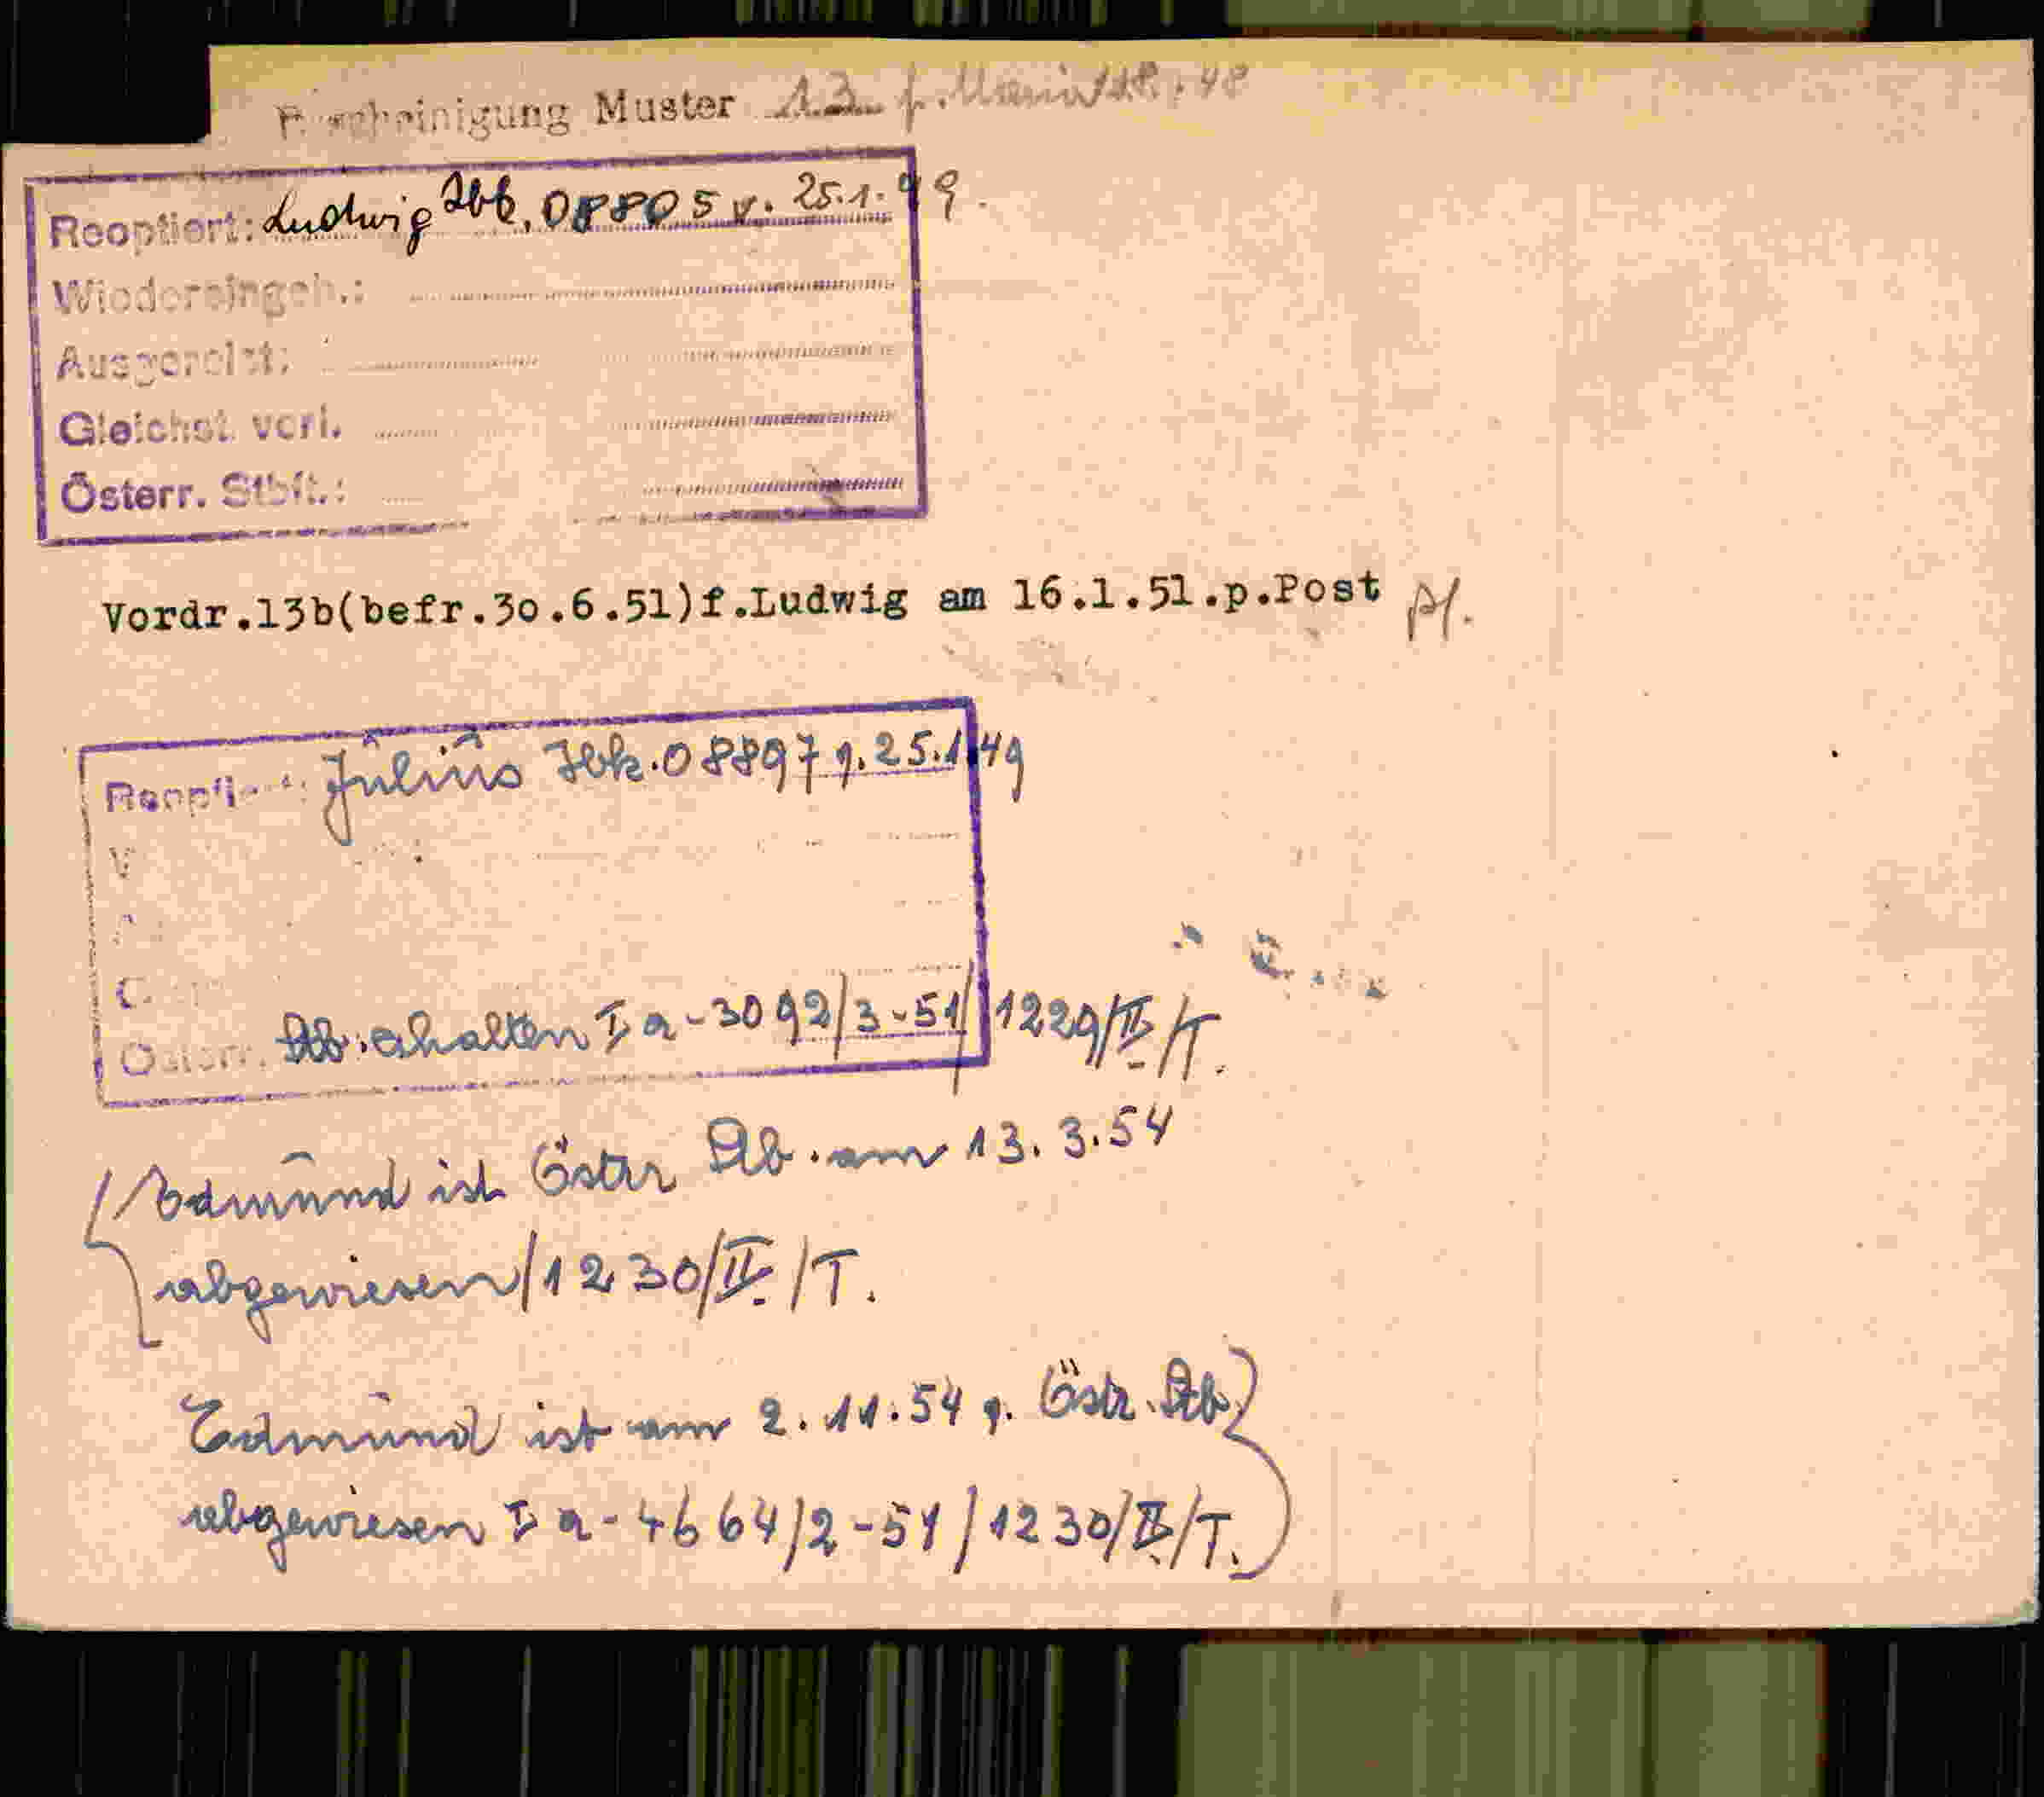 Bescheinigung Muster 13 f. Maria
Reoptiert: Ludwig Ibk. 08805 v. 25.1.49.
Wiedereingeb.:
Ausgereist:
Gleichst. verl.
Österr. Stbft.:
Vordr.13b(befr.30.6.51)f.Ludwig am 16.1.51.p.Post
Reoptiert: Julius Ibk. 08897 v. 25.1.49
Österr. Stb. erhalten Ia-3092/3-51/1229/II/T.
Edmund ist Östrr Stb. am 13.3.54
abgewiesen/1230/II./T.
Edmund ist am 2.11.54 v. Östr. Stb.
abgewiesen Ia-4664/2-51/1230/II./T.